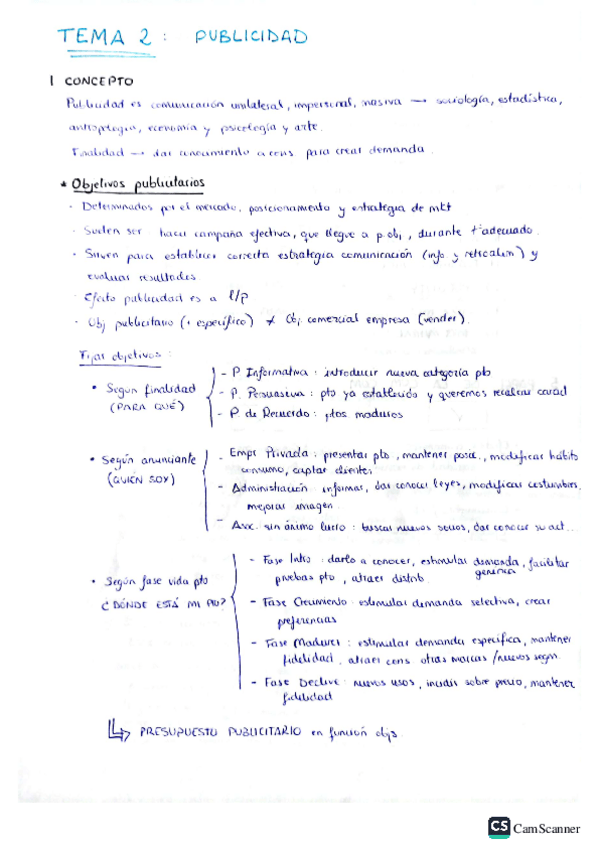 TEMA 2: PUBLICIDAD
1 CONCEPTO
Publicidad es comunicación unilateral, impersonal, masiva → sociología, estadística,
antropología, economía y psicología y arte.
Finalidad → dar conocimiento a cons para crear demanda.
* Objetivos publicitarios
· Determinados por el mercado, posicionamiento y estrategia de mkt
· Suelen ser hacer campaña efectiva, que llegue a p. obj, durante tº adecuado.
· Sirven para establecer correcta estrategia comunicación (info y retroalim) y
evaluar resultados
· Efecto publicidad es a l/p
· Obj publicitario (+ específico) ≠ Obj comercial empresa (vender).
Fijar objetivos:
• Según finalidad
(PARA QUÉ)
- P Informativa: introducir nueva categoría pto
- P. Persuasiva: pto ya establecido y queremos recalcar caract
- P de Recuerdo: ptos maduros
• Según anunciante
(QUIÉN SOY)
- Empr Privada: presentar pto, mantener posic., modificar hábitos
consumo, captar clientes
- Administración: informar, dar conocer leyes, modificar costumbres,
mejorar imagen
- Asoc. sin ánimo lucro: buscar nuevos socios, dar conocer su act...
• Según fase vida pto
¿DÓNDE ESTÁ MI PTO?
- Fase Intro: darlo a conocer, estimular demanda generica, facilitar
pruebas pto, atraer distrib
- Fase Crecimiento: estimular demanda selectiva, crear
preferencias
- Fase Madurez: estimular demanda específica, mantener
fidelidad, atraer cons otras marcas / nuevos segm.
- Fase Declive: nuevos usos, incidir sobre precio, mantener
fidelidad
↳ PRESUPUESTO PUBLICITARIO en función objs
CS CamScanner